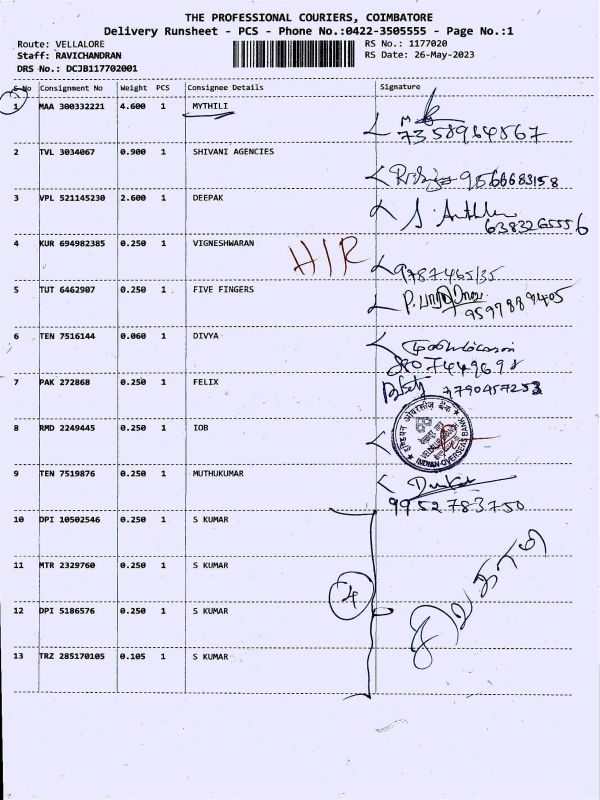 THE PROFESSIONAL COURIERS, COIMBATORE
Delivery Runsheet - PCS - Phone No.:0422-3505555 - Page No.:1
Route: VELLALORE RS No.: 1177020
Staff: RAVICHANDRAN RS Date: 26-May-2023
DRS No.: DCJB117702001
S No Consignment No Weight PCS Consignee Details Signature
1 MAA 300332221 4.600 1 MYTHILI
7358964567
2 TVL 3034067 0.900 1 SHIVANI AGENCIES
9566683158
3 VPL 521145230 2.600 1 DEEPAK
6383265556
4 KUR 694982385 0.250 1 VIGNESHWARAN H/R
9787465135
5 TUT 6462907 0.250 1 FIVE FINGERS
9597889405
6 TEN 7516144 0.060 1 DIVYA
8807449698
7 PAK 272868 0.250 1 FELIX 7790457253
8 RMD 2249445 0.250 1 IOB
इंडियन ओवरसीज़ बैंक
INDIAN OVERSEAS BANK
9 TEN 7519876 0.250 1 MUTHUKUMAR
9952783750
10 DPI 10502546 0.250 1 S KUMAR
11 MTR 2329760 0.250 1 S KUMAR
4
12 DPI 5186576 0.250 1 S KUMAR
13 TRZ 285170105 0.105 1 S KUMAR